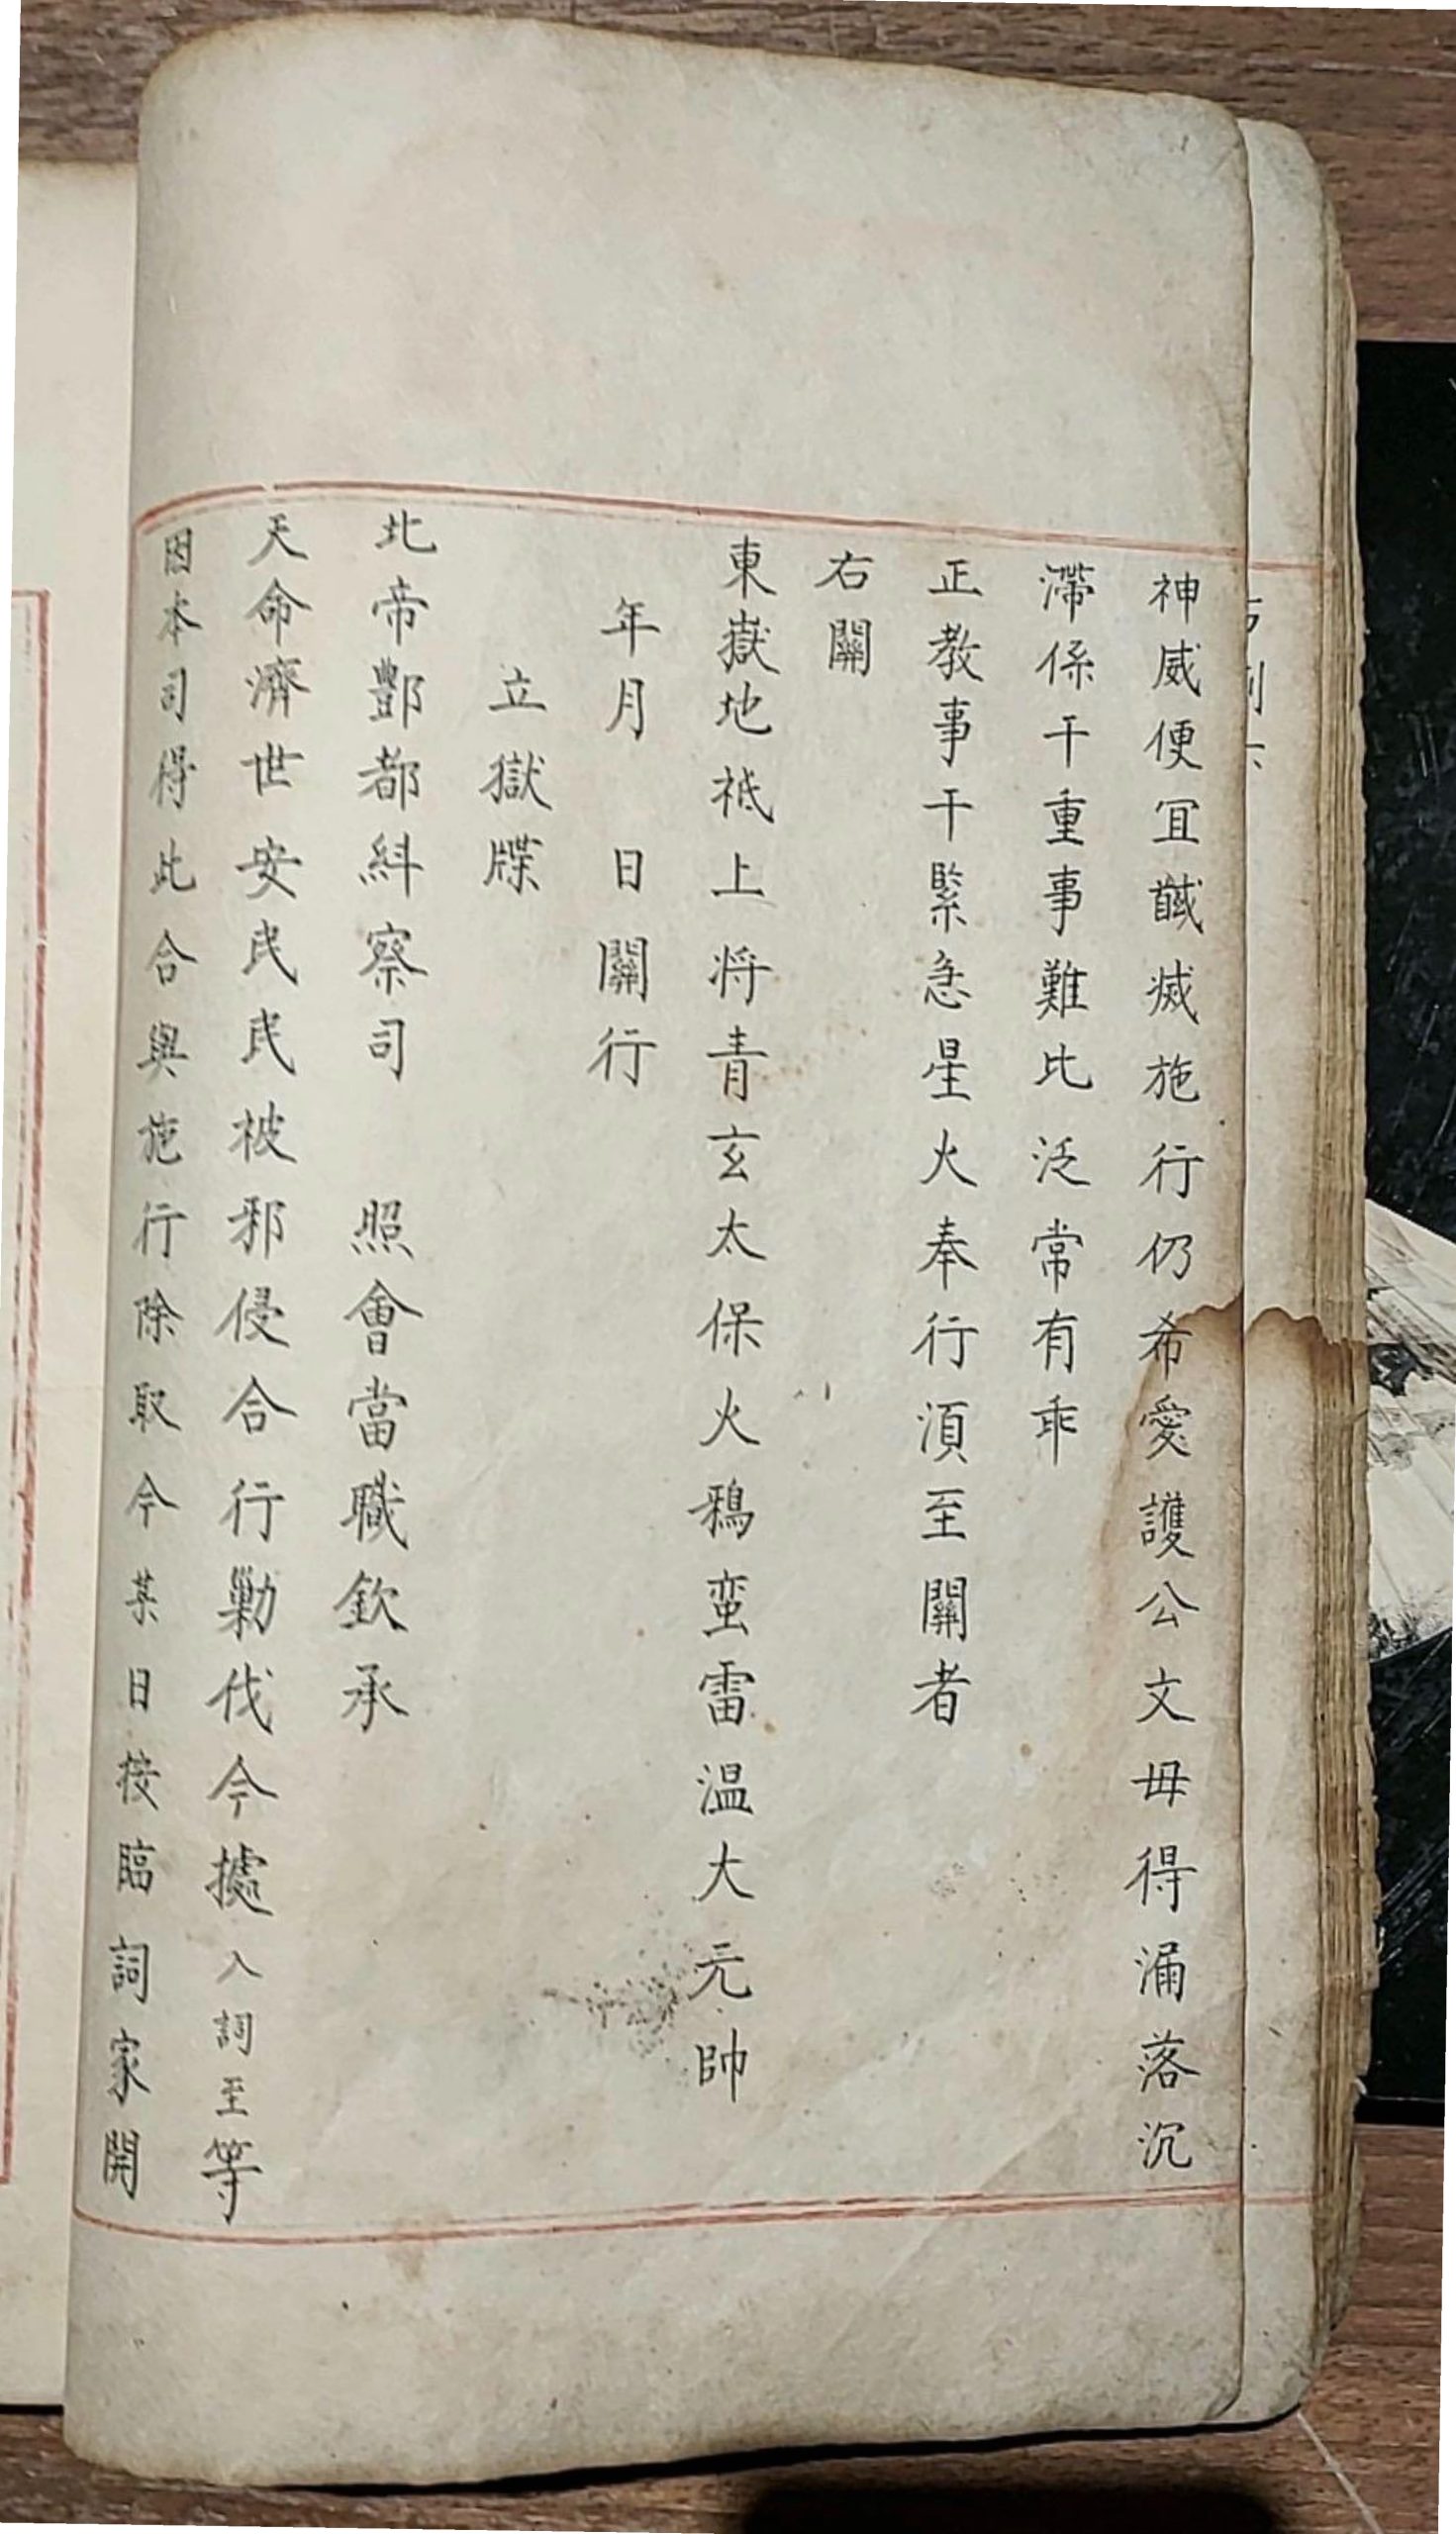 神威便宜馘滅施行仍希愛護公文毋得漏落沉
滯係干重事難比泛常有乖
正教事干緊急星火奉行須至關者
右關
東嶽地祇上将青玄太保火鴉蛮雷温大元帥
年月 日關行
立獄牒
北帝酆都糾察司 照會當職欽承
天命濟世安民民被邪侵合行勦伐今據入詞至等
因本司得此合與施行除取今某日接臨詞家開